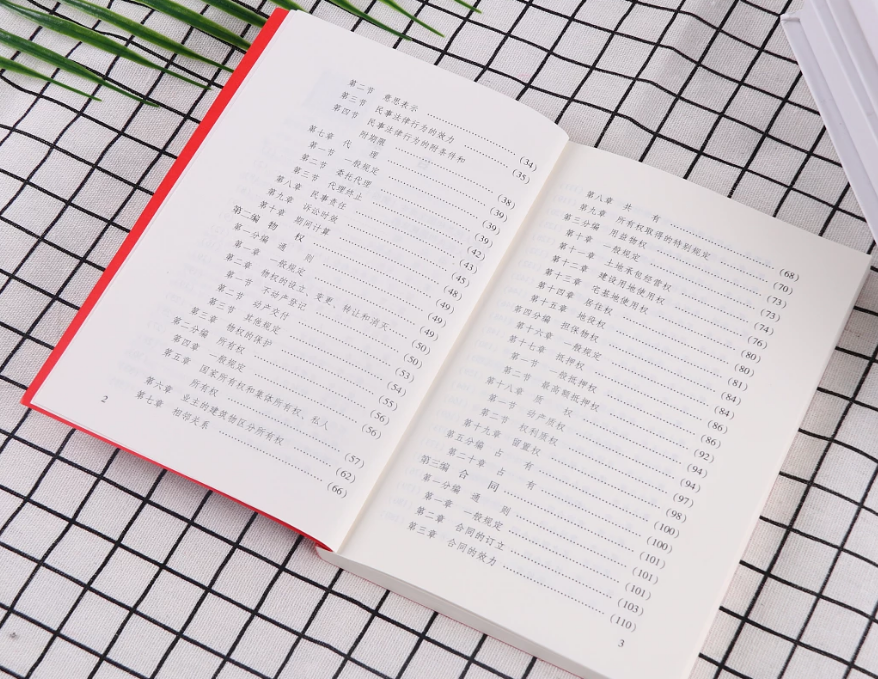 第二节 意思表示 ……………… (34)
第三节 民事法律行为的效力 ……………… (35)
第四节 民事法律行为的附条件和
附期限 ……………… (38)
第七章 代 理 ……………… (39)
第一节 一般规定 ……………… (39)
第二节 委托代理 ……………… (39)
第三节 代理终止 ……………… (42)
第八章 民事责任 ……………… (43)
第九章 诉讼时效 ……………… (45)
第十章 期间计算 ……………… (48)
第二编 物 权 ……………… (49)
第一分编 通 则 ……………… (49)
第一章 一般规定 ……………… (49)
第二章 物权的设立、变更、转让和消灭 … (50)
第一节 不动产登记 ……………… (50)
第二节 动产交付 ……………… (53)
第三节 其他规定 ……………… (54)
第三章 物权的保护 ……………… (55)
第二分编 所有权 ……………… (56)
第四章 一般规定 ……………… (56)
第五章 国家所有权和集体所有权、私人
所有权 ……………… (57)
第六章 业主的建筑物区分所有权 ……………… (62)
第七章 相邻关系 ……………… (66)
2
第八章 共 有 ……………… (68)
第九章 所有权取得的特别规定 ……………… (70)
第三分编 用益物权 ……………… (73)
第十章 一般规定 ……………… (73)
第十一章 土地承包经营权 ……………… (74)
第十二章 建设用地使用权 ……………… (76)
第十三章 宅基地使用权 ……………… (80)
第十四章 居住权 ……………… (80)
第十五章 地役权 ……………… (81)
第四分编 担保物权 ……………… (84)
第十六章 一般规定 ……………… (84)
第十七章 抵押权 ……………… (86)
第一节 一般抵押权 ……………… (86)
第二节 最高额抵押权 ……………… (92)
第十八章 质 权 ……………… (94)
第一节 动产质权 ……………… (94)
第二节 权利质权 ……………… (97)
第十九章 留置权 ……………… (98)
第五分编 占 有 ……………… (100)
第二十章 占 有 ……………… (100)
第三编 合 同 ……………… (101)
第一分编 通 则 ……………… (101)
第一章 一般规定 ……………… (101)
第二章 合同的订立 ……………… (103)
第三章 合同的效力 ……………… (110)
3